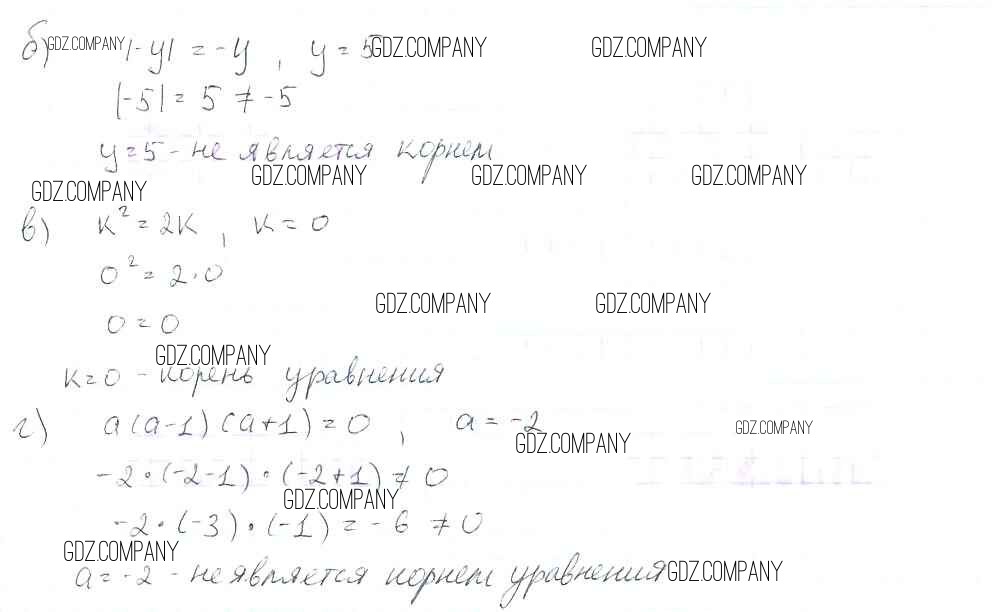 б) GDZ.COMPANY |-y| = -y, y = 5 GDZ.COMPANY GDZ.COMPANY
|-5| = 5 ≠ -5
y=5 - не является корнем
GDZ.COMPANY GDZ.COMPANY GDZ.COMPANY GDZ.COMPANY
в) k² = 2k, k = 0
0² = 2·0
GDZ.COMPANY GDZ.COMPANY
0 = 0
GDZ.COMPANY
k=0 - корень уравнения
г) a(a-1)(a+1) = 0, a = -2 GDZ.COMPANY
GDZ.COMPANY
-2·(-2-1)·(-2+1) ≠ 0
GDZ.COMPANY
-2·(-3)·(-1) = -6 ≠ 0
GDZ.COMPANY
a = -2 - не является корнем уравнения GDZ.COMPANY